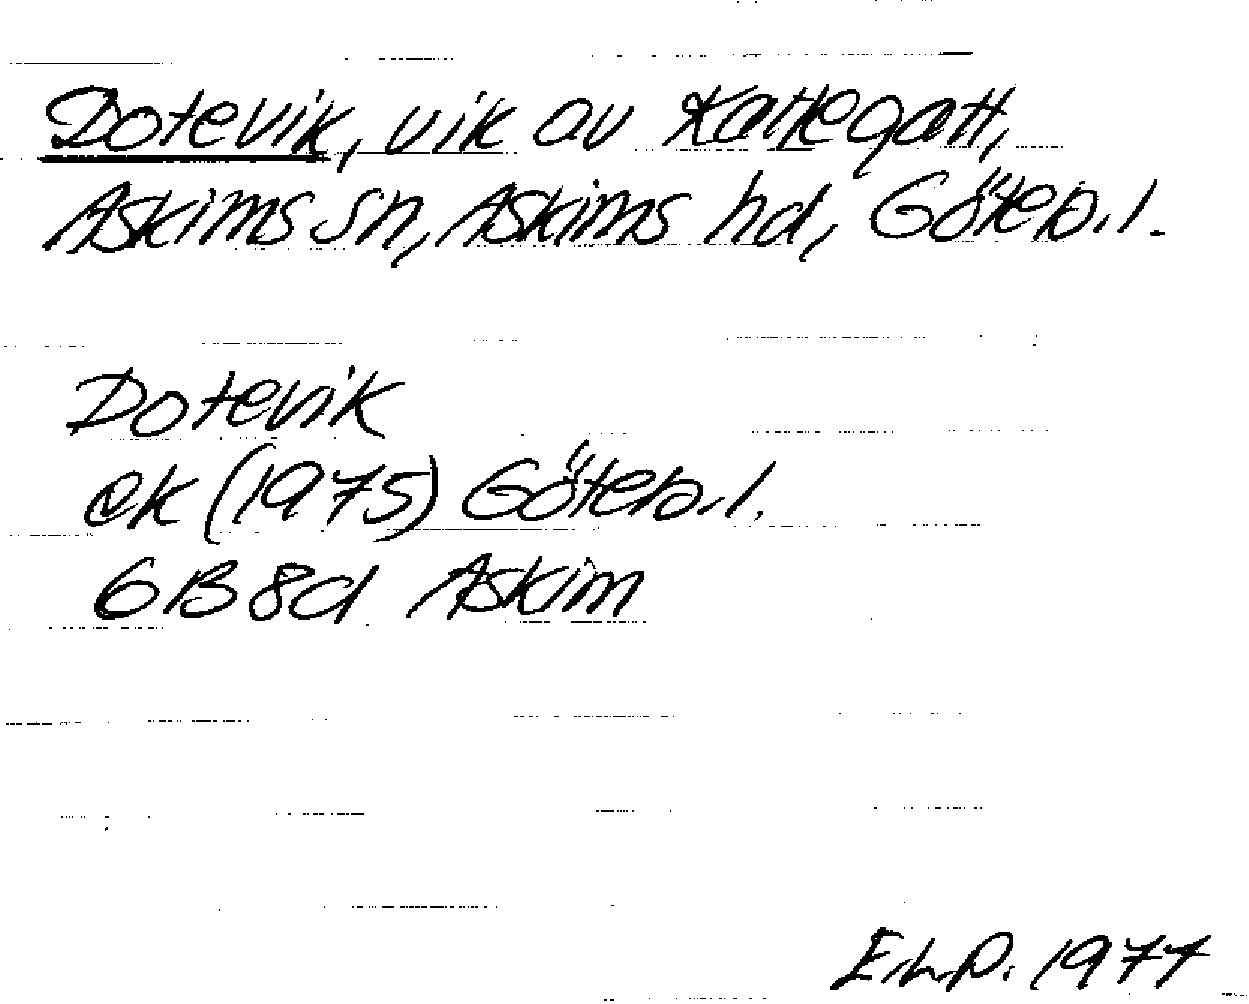 Dotevik, vik av Kattegatt,
Askims sn, Askims hd, Göteb.l.
Dotevik
ek (1975) Göteb.l.
6B8d Askim
E.h.p. 1977